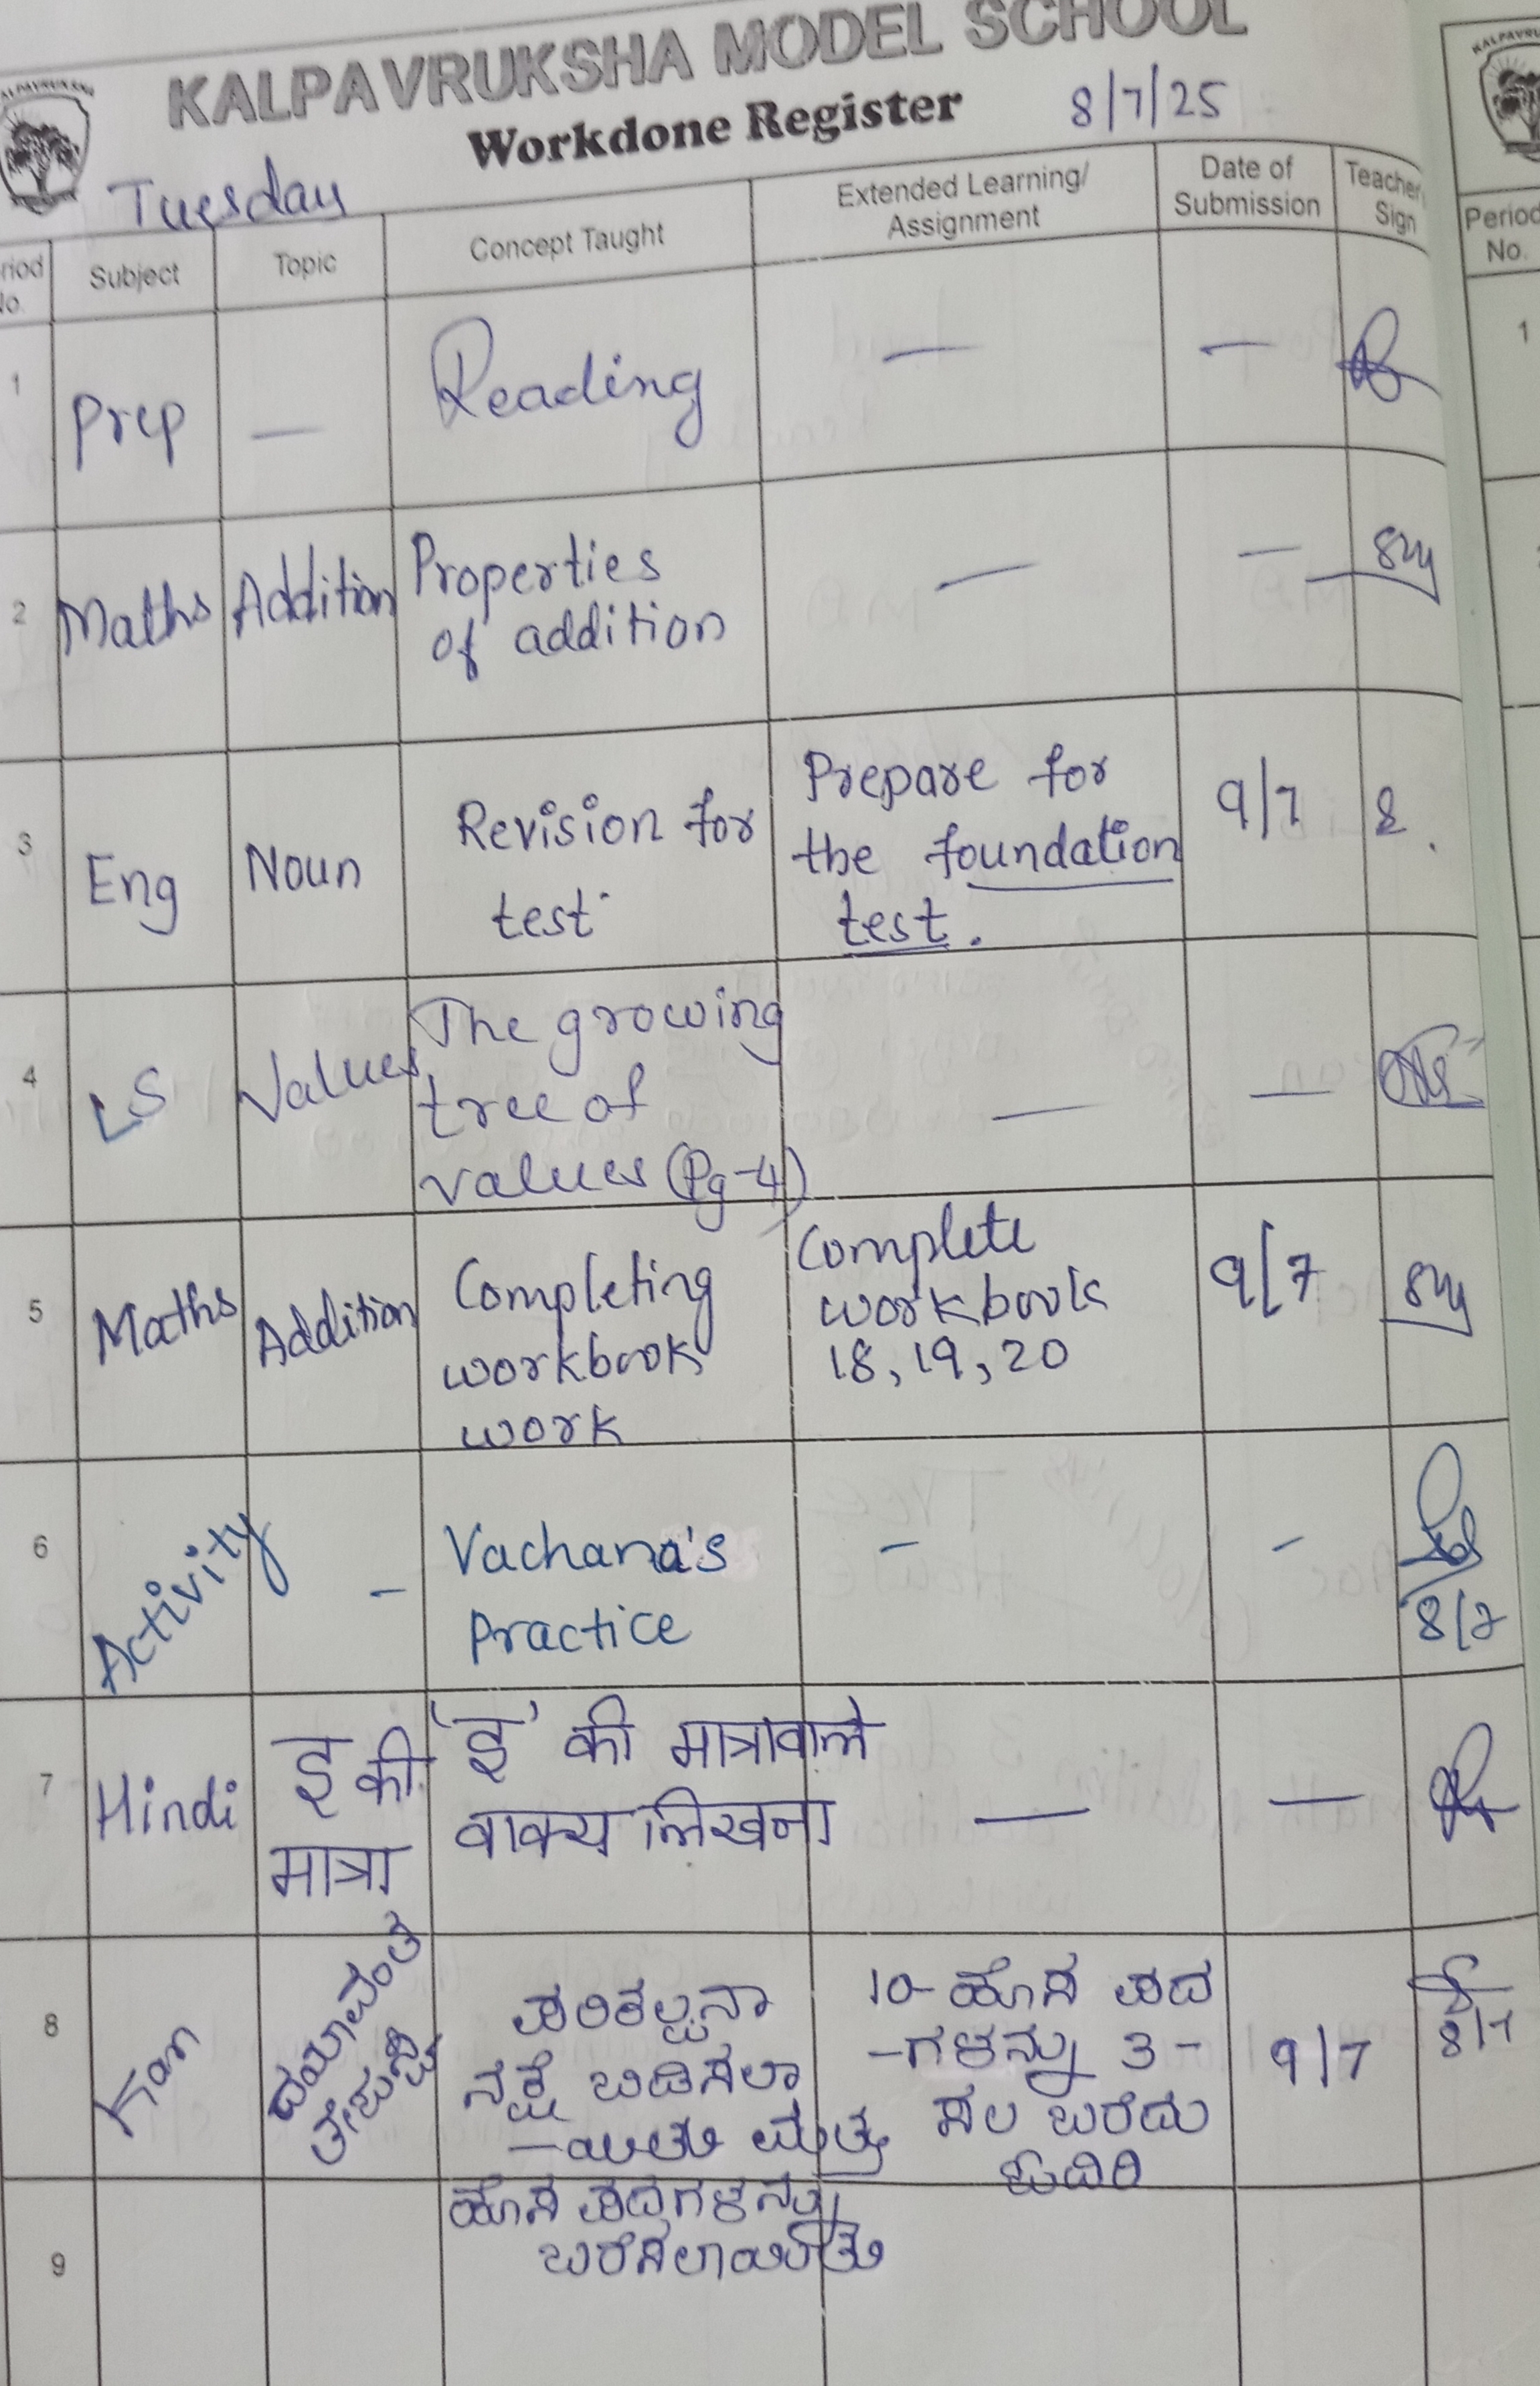 KALPAVRUKSHA MODEL SCHOOL
Workdone Register 8/7/25
Tuesday
Subject Topic Concept Taught Extended Learning/ Assignment Date of Submission Teacher Sign
1 Prep — Reading — —
2 Maths Addition Properties of addition — —
3 Eng Noun Revision for test Prepare for the foundation test. 9/7
4 LS Values The growing tree of values (Pg-4) — —
5 Maths Addition Completing workbook work Complete workbook 18, 19, 20 9/7
6 Activity - Vachana's Practice - - 8/7
7 Hindi इ की मात्रा 'इ' की मात्रावाले वाक्य लिखना — —
8 Kan ಪರಿಕಲ್ಪನಾ ನಕ್ಷೆ ಬಿಡಿಸಲಾ -ಯಿತು ಮತ್ತು ಹೊಸ ಪದಗಳನ್ನು ಬರೆಸಲಾಯಿತು 10-ಹೊಸ ಪದ -ಗಳನ್ನು 3- ಸಲ ಬರೆದು ಓದಿರಿ 9/7 8/7
9
Period No.
1